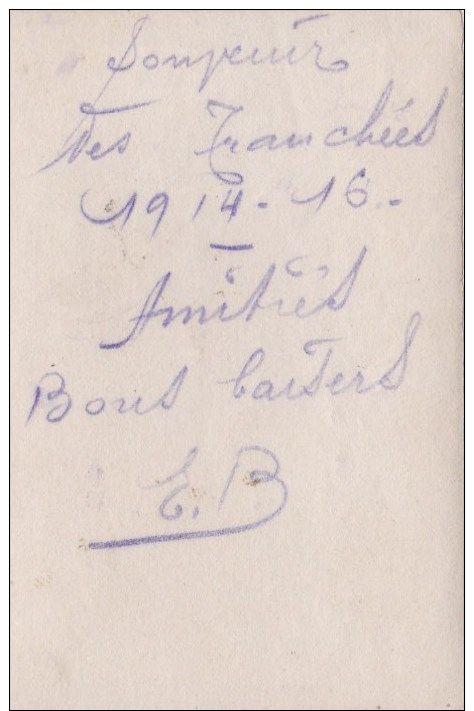 Souvenir
des Tranchées
1914-16.
Amitiés
Bons baisers
E.B